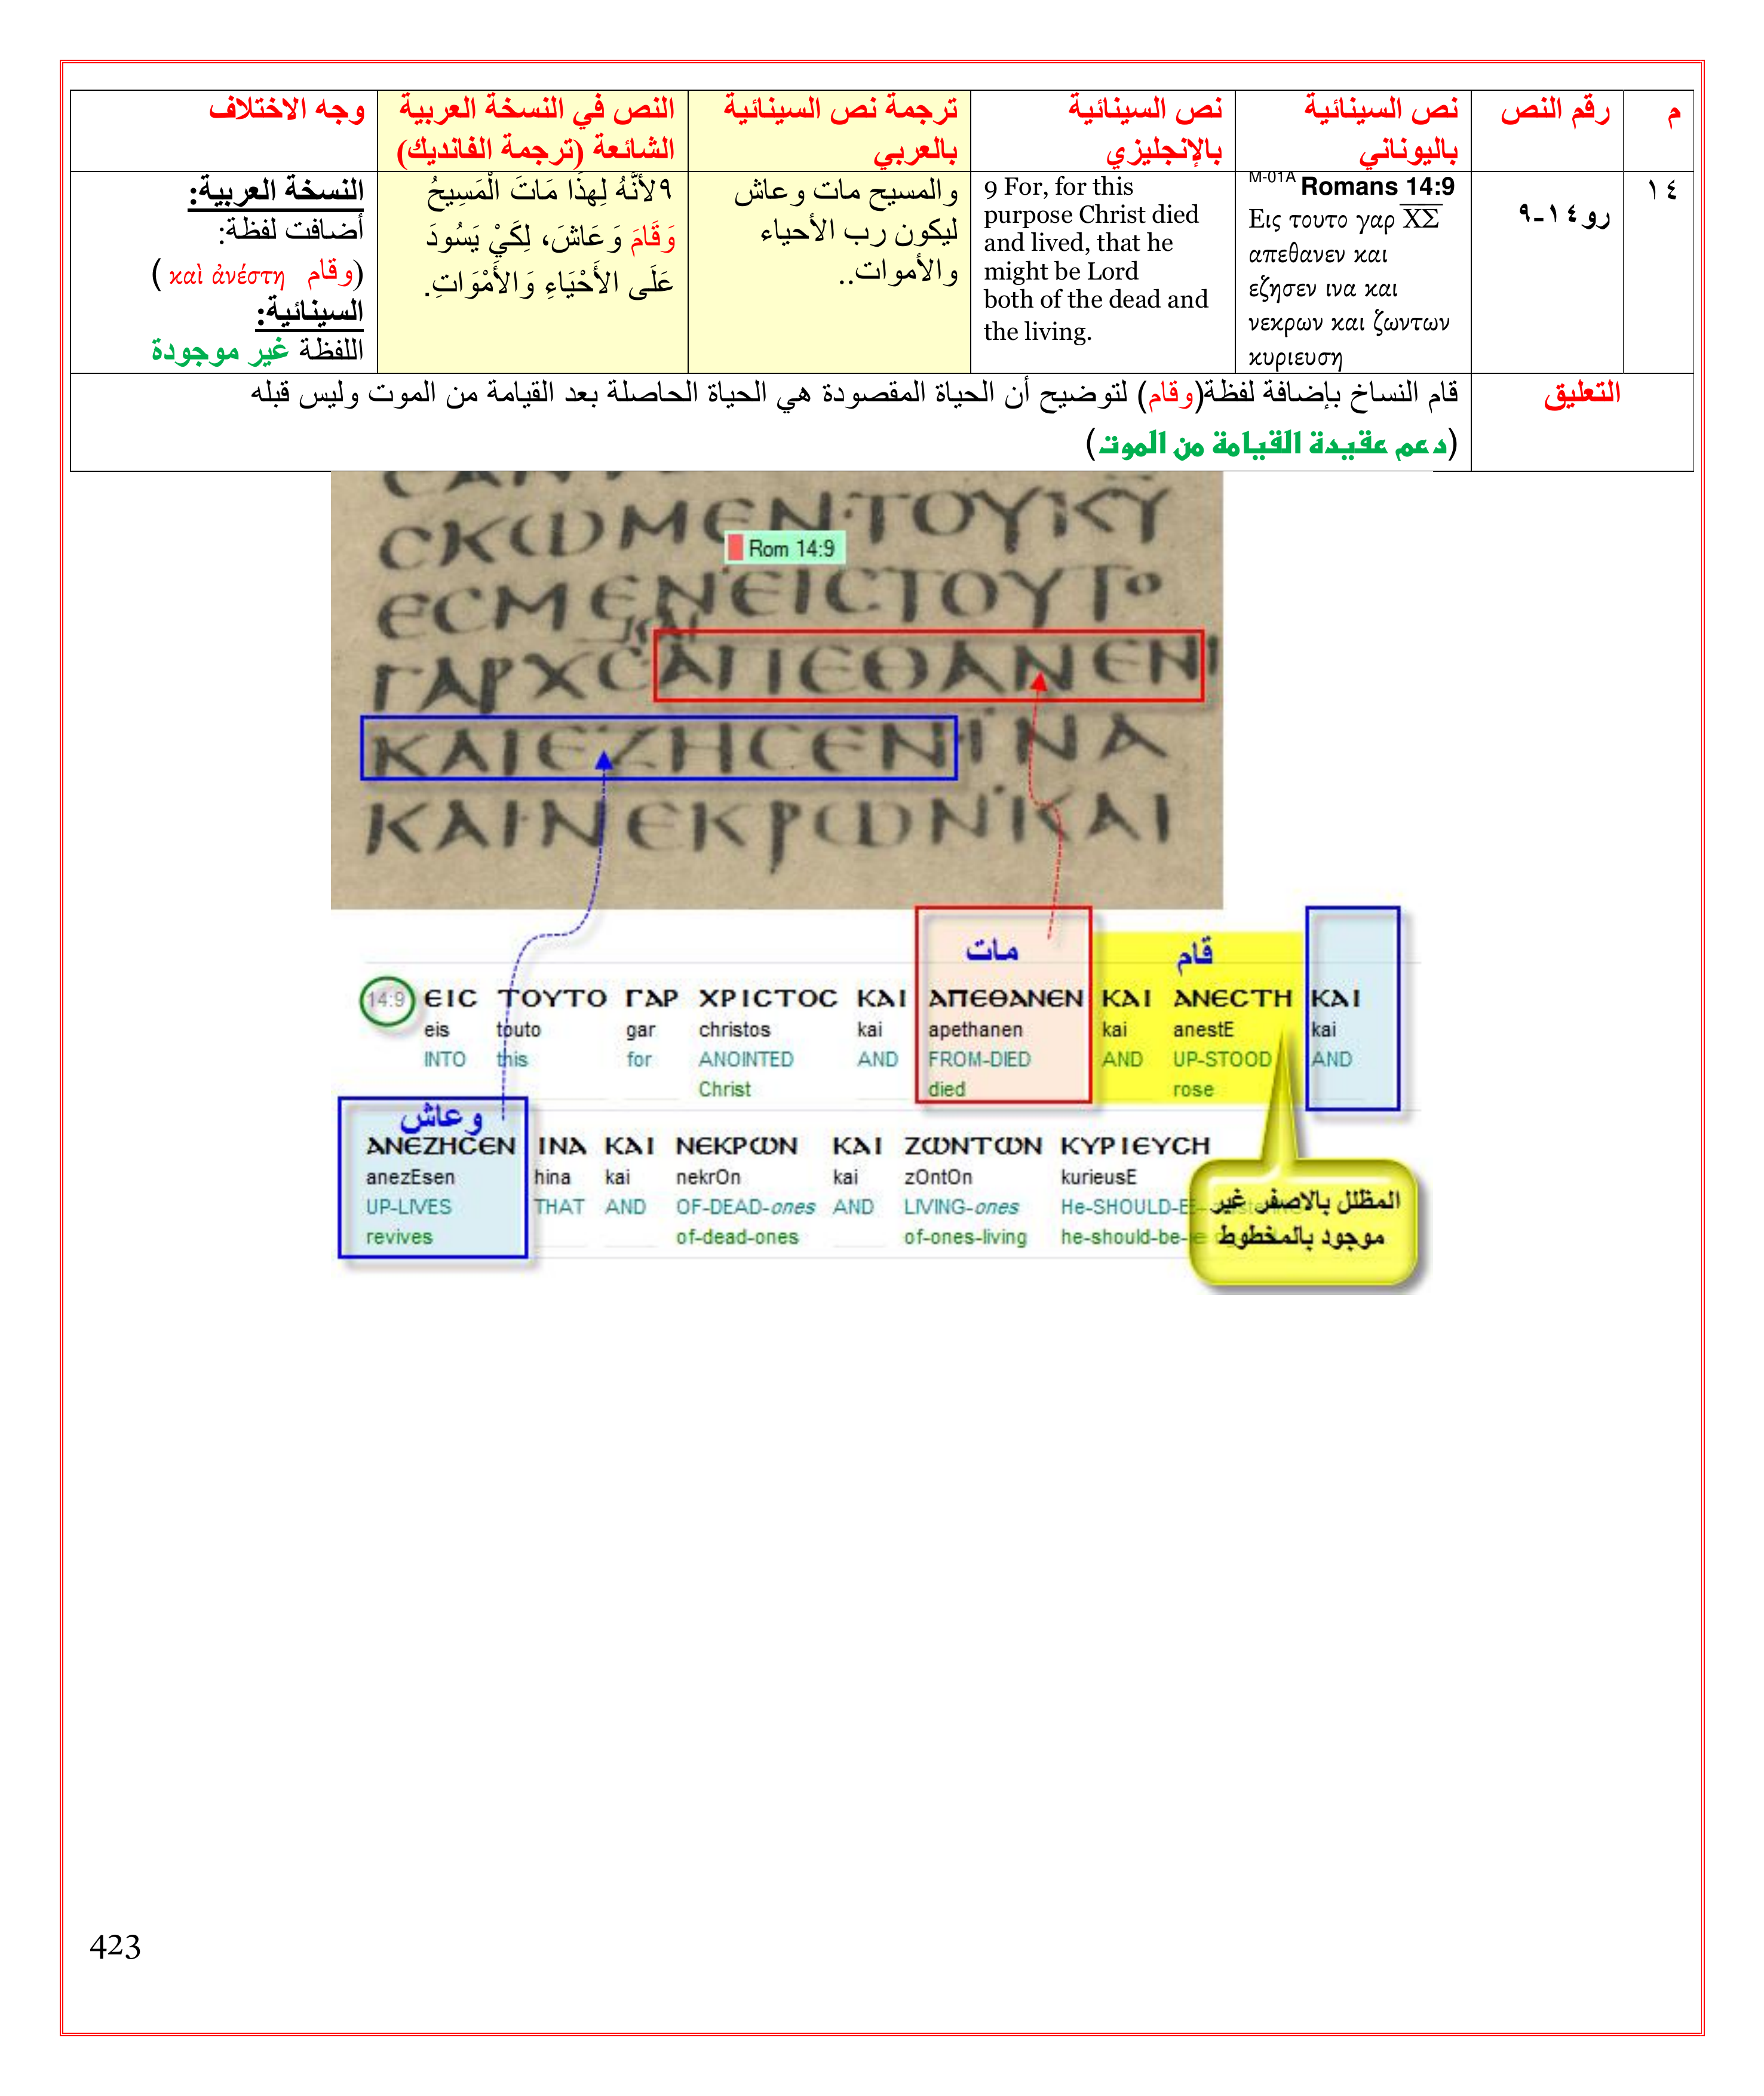 م
رقم النص
نص السينائية
باليوناني
نص السينائية
بالإنجليزي
ترجمة نص السينائية
بالعربي
النص في النسخة العربية
الشائعة (ترجمة الفانديك)
وجه الاختلاف
١٤
رو١٤-٩
M-01A Romans 14:9
Εις τουτο γαρ ΧΣ
απεθανεν και
εζησεν ινα και
νεκρων και ζωντων
κυριευση
9 For, for this
purpose Christ died
and lived, that he
might be Lord
both of the dead and
the living.
والمسيح مات وعاش
ليكون رب الأحياء
والأموات..
٩لأَنَّهُ لِهذَا مَاتَ الْمَسِيحُ
وَقَامَ وَعَاشَ، لِكَيْ يَسُودَ
عَلَى الأَحْيَاءِ وَالأَمْوَاتِ.
النسخة العربية:
أضافت لفظة:
(وقام καὶ ἀνέστη )
السينائية:
اللفظة غير موجودة
التعليق
قام النساخ بإضافة لفظة(وقام) لتوضيح أن الحياة المقصودة هي الحياة الحاصلة بعد القيامة من الموت وليس قبله
(دعم عقيدة القيامة من الموت)
ϹΚⲰΜΕΝ·ΤΟΥΚΥ
Rom 14:9
ΕϹΜΕΝΕΙϹΤΟΥΤΟ
ΓΑΡΧϹΑΠΕΘΑΝΕΝ
ΚΑΙΕΖΗϹΕΝ·ΙΝΑ
ΚΑΙΝΕΚΡⲰΝΚΑΙ
مات
قام
14:9 ЄΙϹ ΤΟΥΤΟ ΓΑΡ ΧΡΙϹΤΟϹ ΚΑΙ ΑΠЄΘΑΝЄΝ ΚΑΙ ΑΝЄϹΤΗ ΚΑΙ
eis touto gar christos kai apethanen kai anestE kai
INTO this for ANOINTED AND FROM-DIED AND UP-STOOD AND
Christ died rose
وعاش
ΑΝЄΖΗϹЄΝ ΙΝΑ ΚΑΙ ΝЄΚΡⲰΝ ΚΑΙ ΖⲰΝΤⲰΝ ΚΥΡΙЄΥϹΗ
anezEsen hina kai nekrOn kai zOntOn kurieusE
UP-LIVES THAT AND OF-DEAD-ones AND LIVING-ones He-SHOULD-BE-
revives of-dead-ones of-ones-living he-should-be-
المظلل بالاصفر غير
موجود بالمخطوط
423